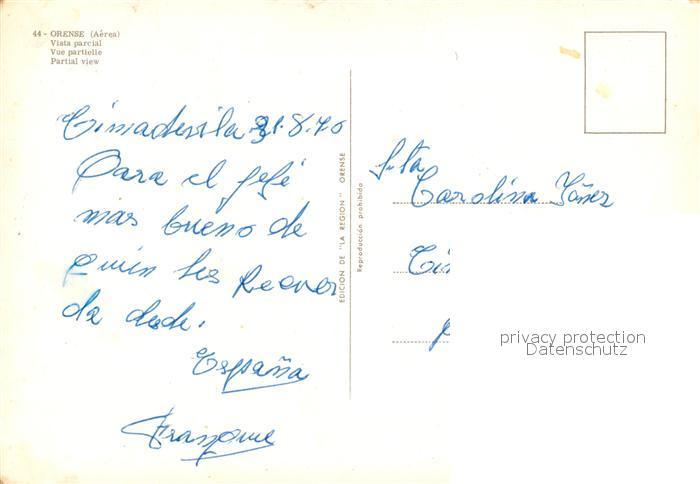 44 - ORENSE (Aérea)
Vista parcial
Vue partielle
Partial view
Cimadevila 31.8.70
Para el jefé
mas bueno de
quien les Recuer
da desde.
España
EDICION DE "LA REGION" ORENSE
Reproducción prohibida
Srta
Carolina Yáñez
privacy protection
Datenschutz